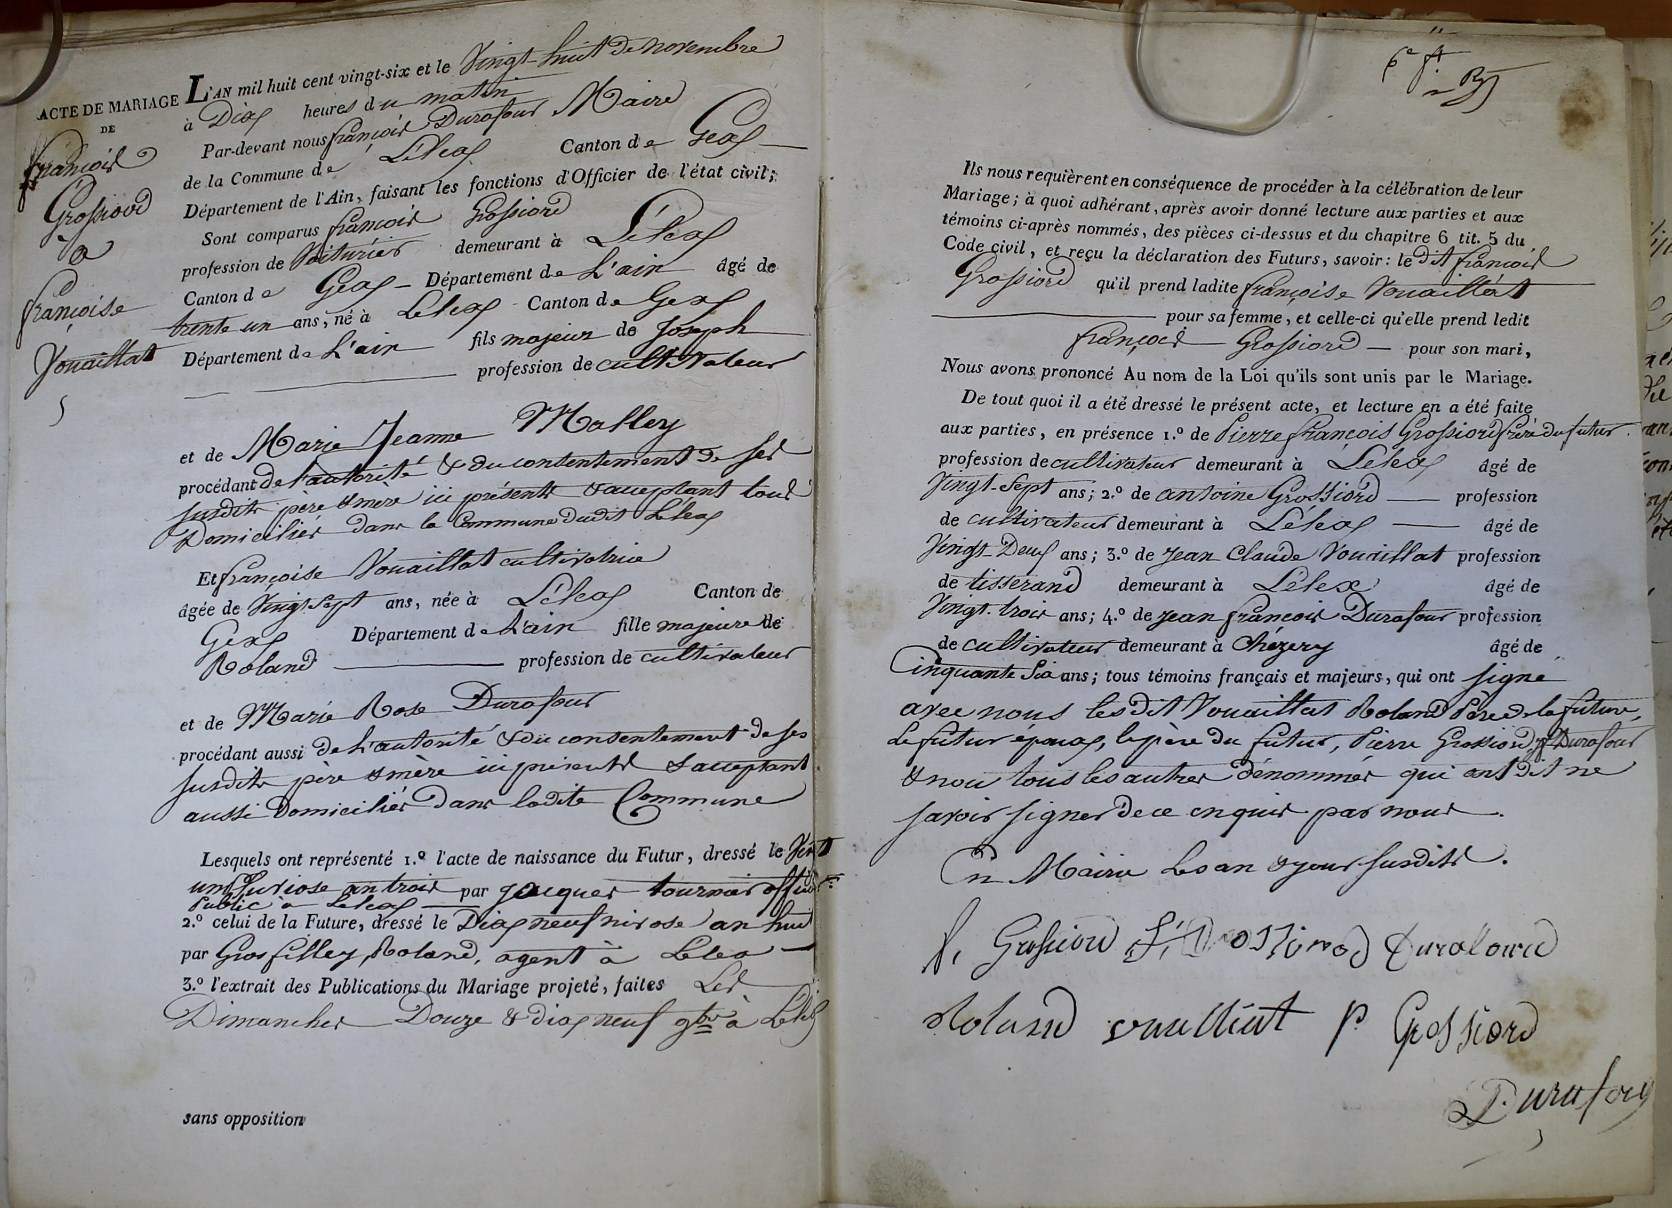 ACTE DE MARIAGE
DE
françois
Grossiord
a
françoise
Vouaillat
L'AN mil huit cent vingt-six et le Vingt huit de novembre
à Dix heures du matin
Par-devant nous françois Durafour Maire
de la Commune de Lélex Canton de Gex
Département de l'Ain, faisant les fonctions d'Officier de l'état civil;
Sont comparus françois Grossiord
profession de Voiturier demeurant à Lélex
Canton de Gex Département de L'ain âgé de
trente un ans, né à Lelex Canton de Gex
Département de L'ain fils majeur de Joseph
profession de cultivateur
et de Marie Jeanne Malley
procédant de l'autorité & du contentement de ses
susdits père & mère ici présents & acceptant tous
Domiciliés dans la Commune dudit Lélex
Et françoise Vouaillat cultivatrice
âgée de Vingt Sept ans, née à Lélex Canton de
Gex Département de L'ain fille majeure de
Roland profession de cultivateur
et de Marie Rose Durafour
procédant aussi de l'autorité & du consentement de ses
susdits père & mère ici présents & acceptant
aussi Domiciliés dans ladite Commune
Lesquels ont représenté 1.º l'acte de naissance du Futur, dressé le Vint
un pluviose an trois par jacques tournier officier
Public à Lelex
2.º celui de la Future, dressé le Dix neuf nivose an huit
par Grosfilley, Roland, agent à Lelex
3.º l'extrait des Publications du Mariage projeté, faites Les
Dimanches Douze & dix neuf 9bre à Lélex
sans opposition
Ils nous requièrent en conséquence de procéder à la célébration de leur
Mariage; à quoi adhérant, après avoir donné lecture aux parties et aux
témoins ci-après nommés, des pièces ci-dessus et du chapitre 6 tit. 5 du
Code civil, et reçu la déclaration des Futurs, savoir: le dit françois
Grossiord qu'il prend ladite françoise Vouaillat
pour sa femme, et celle-ci qu'elle prend ledit
françois Grossiord pour son mari,
Nous avons prononcé Au nom de la Loi qu'ils sont unis par le Mariage.
De tout quoi il a été dressé le présent acte, et lecture en a été faite
aux parties, en présence 1.º de Pierre françois Grossiord frère du futur.
profession de cultivateur demeurant à Lélex âgé de
Vingt-Sept ans; 2.º de antoine Grossiord profession
de cultivateur demeurant à Lélex âgé de
Vingt-Deux ans; 3.º de Jean Claude Vouaillat profession
de tisserand demeurant à Lélex âgé de
Vingt-trois ans; 4.º de jean françois Durafour profession
de cultivateur demeurant à Chézery âgé de
Cinquante Six ans; tous témoins français et majeurs, qui ont signé
avec nous les dit Vouaillat Roland Père de la future,
Le futur epoux, le père du futur, Pierre Grossiord, jf Durafour
& non tous les autres dénommés qui ont dit ne
savoir signer de ce enquis par nous.
En Mairie les an & jour susdits.
f. Grossiord
Roland vuailliat p. Grossiord
Durafour